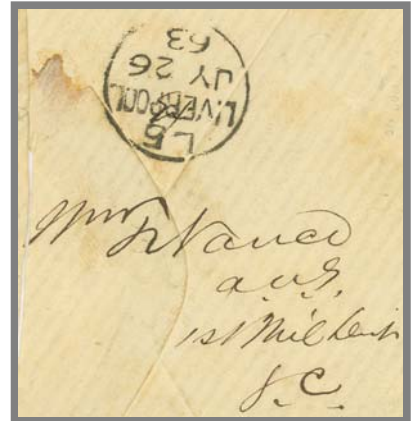 LIVERPOOL
JY 26
63
Nance
1st Mil Dist
S.C.